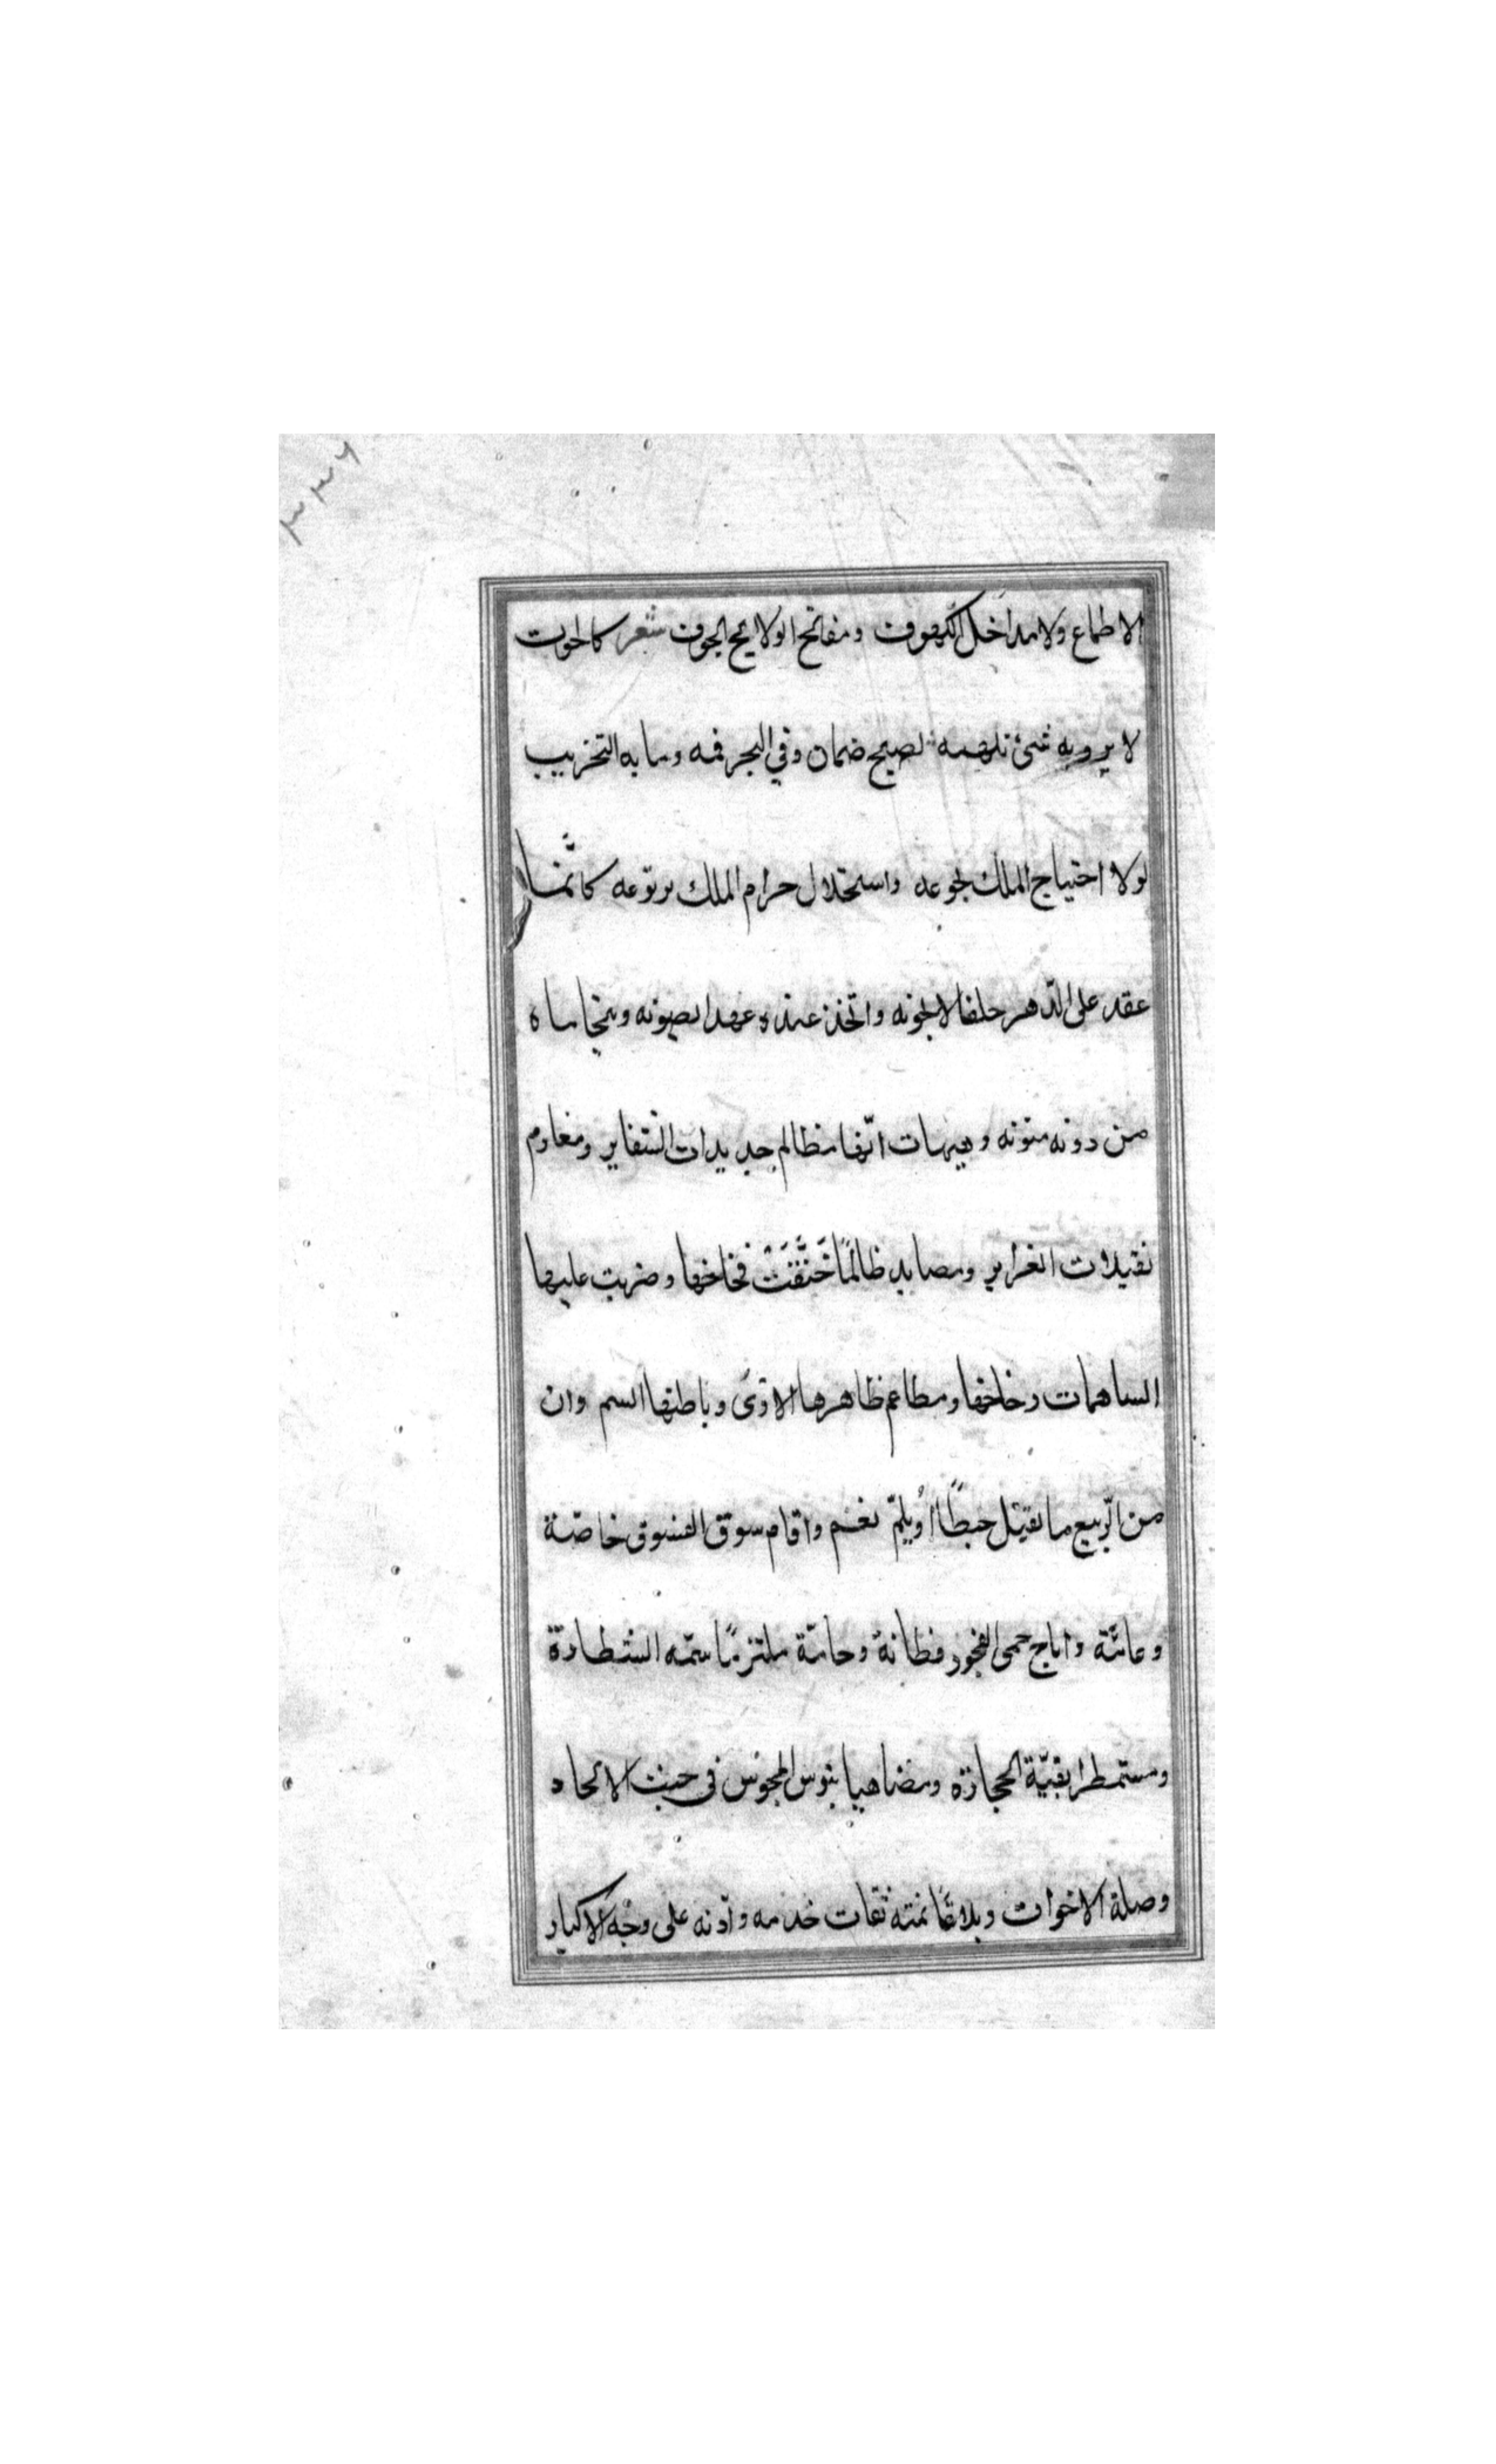 ٣٣٦
الاطماع ولا مداخل الكهوف ومفاتح الولايج الجوف شعر كالحوت
لا يرويه شئ تلهمه يصبح ضمان وفي البحر فمه وما به التخريب
لولا احتياج الملك لجوعه واستحلال حرام الملك بربوعه كانّما
عقد على الدّهر حلفا لا يخونه واتخذ عنده عهدا يصونه ويتخاساه
من دونه منونه وهيهات انّها مظالم حديدات الشفاير ومغارم
ثقيلات الغراير ومصايد ظالمًا خَنَّقَتْ فخاخها وضربت عليها
الساهمات رخاخها ومطاعم ظاهرها الاذى وباطنها السم وان
من الرّبيع ما يقتل حبطًا او يلمّ نعم واقام سوق الفسوق خاصّة
وعامّة واباح حمى الفجور فطانة وحامّة ملتزمًا سمّه الشطارة
ومستمطرا بقيّة الحجارة ومضاهيا بنوس المجوس في حبث الالحاد
وصلة الاخوات وبلاقا نمته ثقات خدمه واذنه على وجه الاكبار